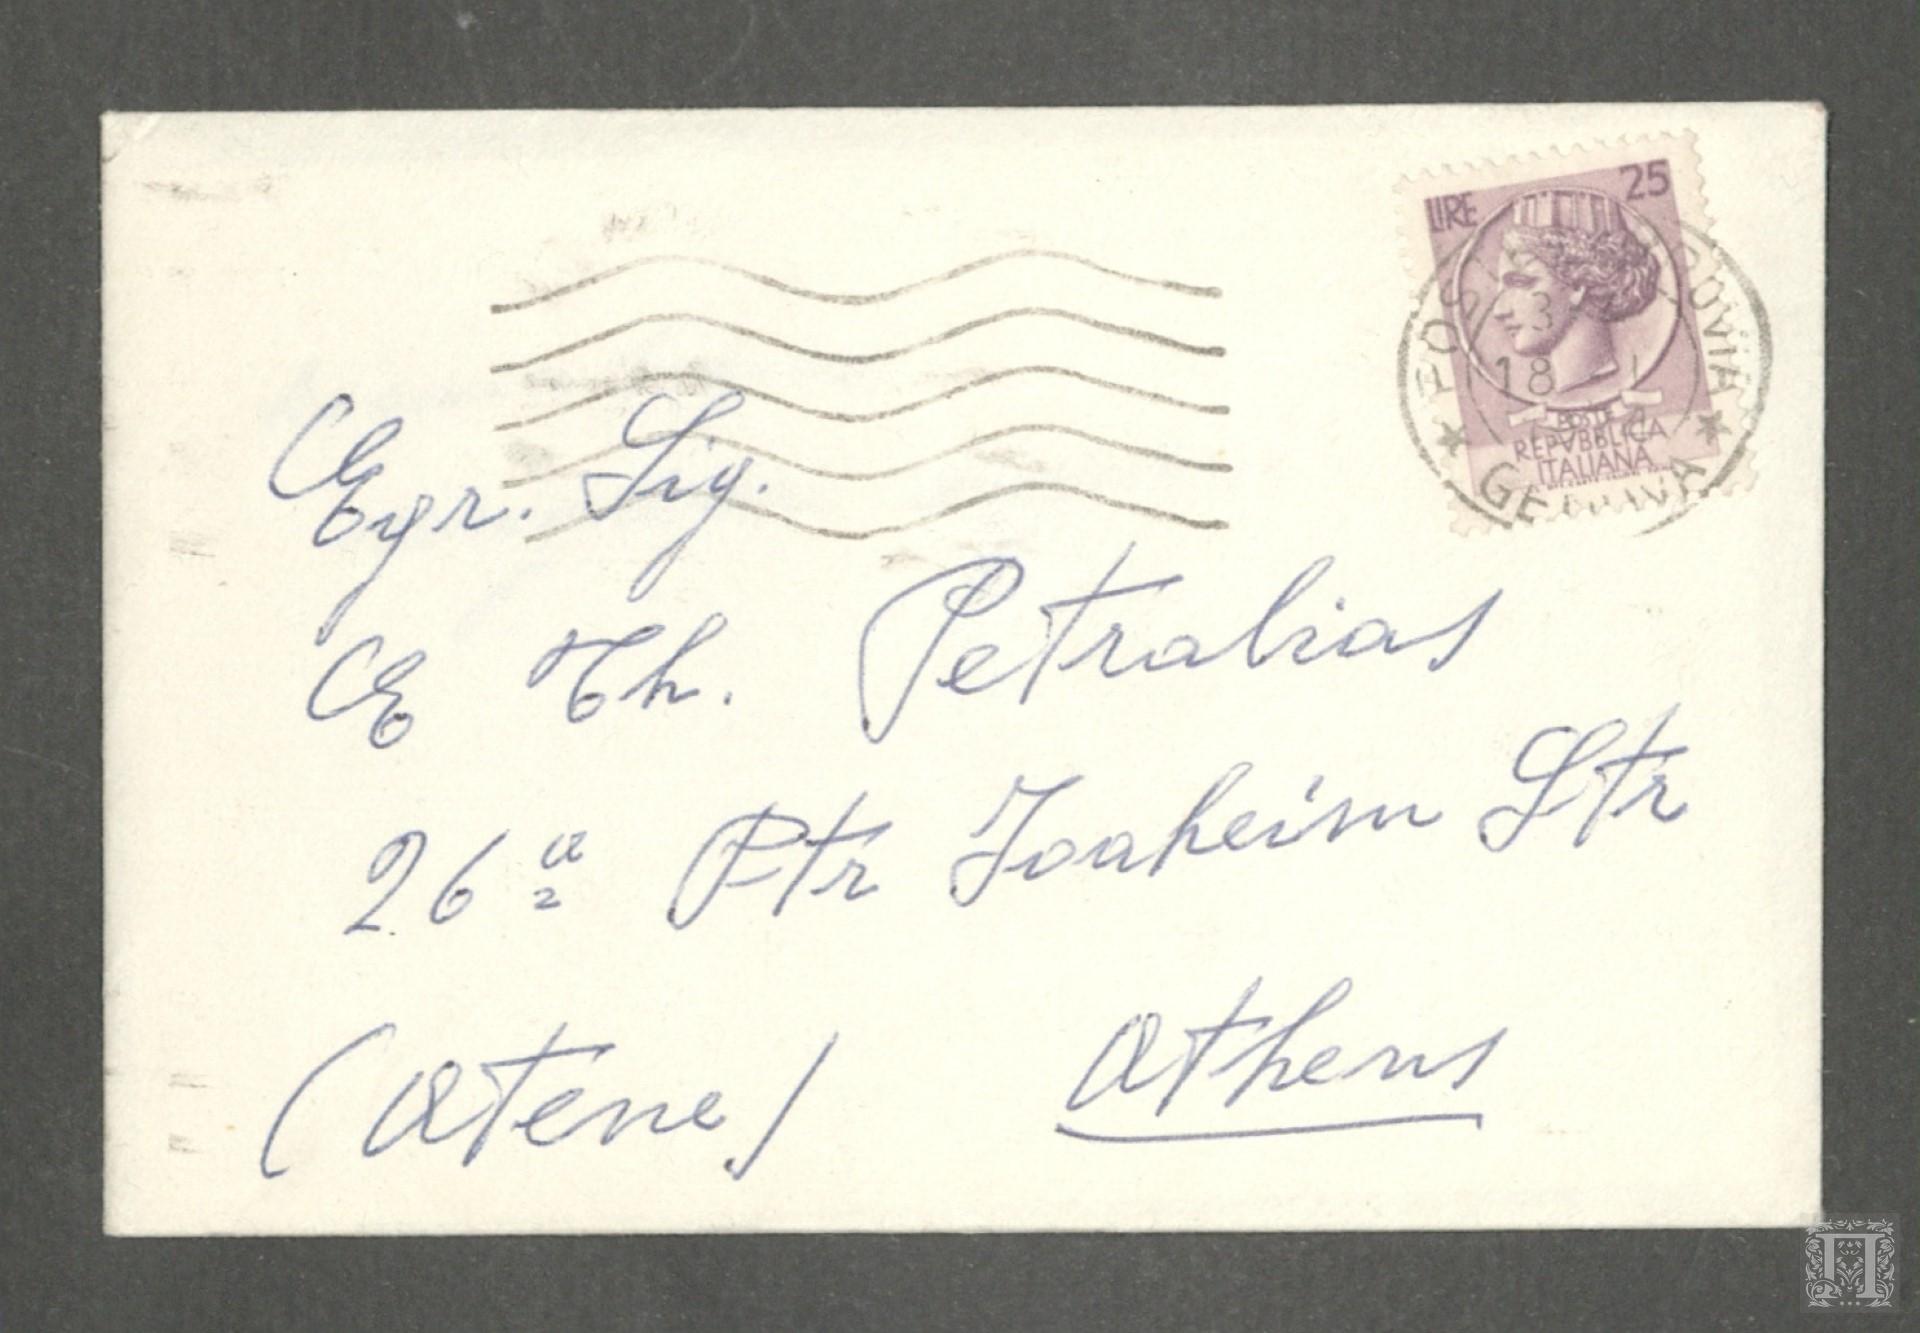 LIRE 25
POSTE
REPVBBLICA
ITALIANA
18
GENOVA
Egr. Sig.
E Th. Petralias
26a Ptr Joaheim Str
(Atene) Athens